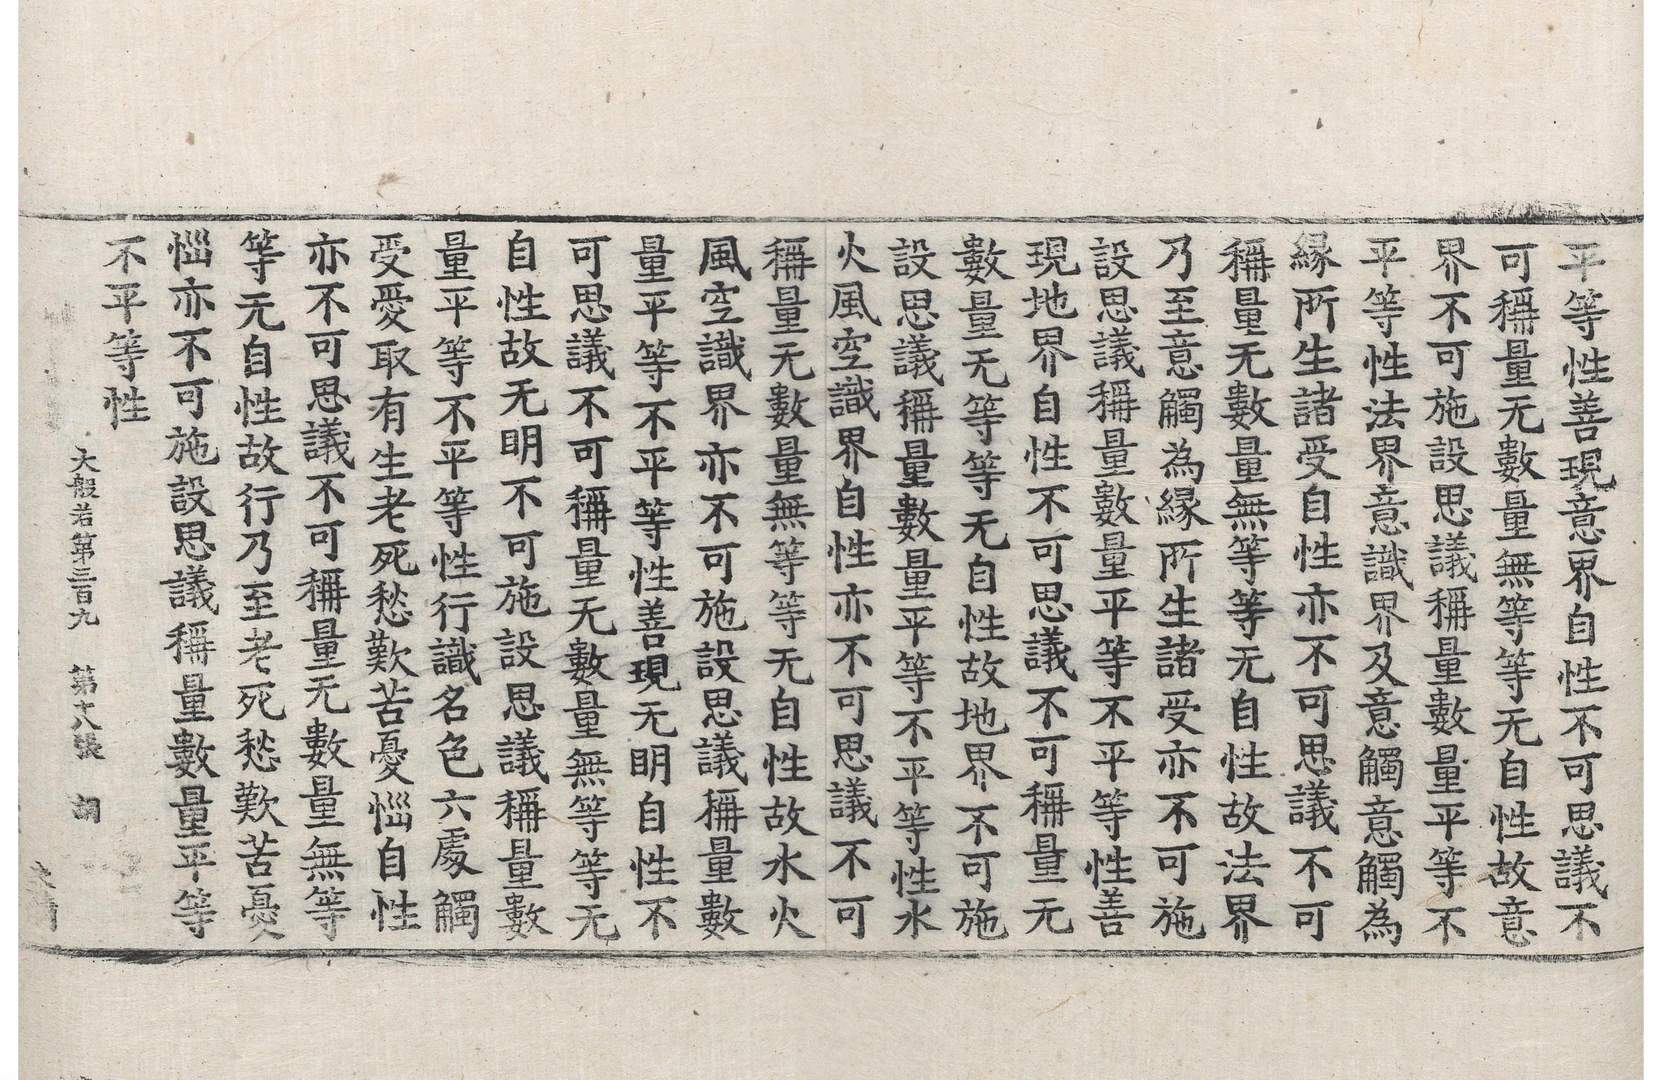 平等性善現意界自性不可思議不
可稱量无數量無等等无自性故意
界不可施設思議稱量數量平等不
平等性法界意識界及意觸意觸為
縁所生諸受自性亦不可思議不可
稱量无數量無等等无自性故法界
乃至意觸為縁所生諸受亦不可施
設思議稱量數量平等不平等性善
現地界自性不可思議不可稱量无
數量无等等无自性故地界不可施
設思議稱量數量平等不平等性水
火風空識界自性亦不可思議不可
稱量无數量無等等无自性故水火
風空識界亦不可施設思議稱量數
量平等不平等性善現无明自性不
可思議不可稱量无數量無等等无
自性故无明不可施設思議稱量數
量平等不平等性行識名色六處觸
受愛取有生老死愁歎苦憂惱自性
亦不可思議不可稱量无數量無等
等无自性故行乃至老死愁歎苦憂
惱亦不可施設思議稱量數量平等
不平等性
大般若第三百九 第十八張